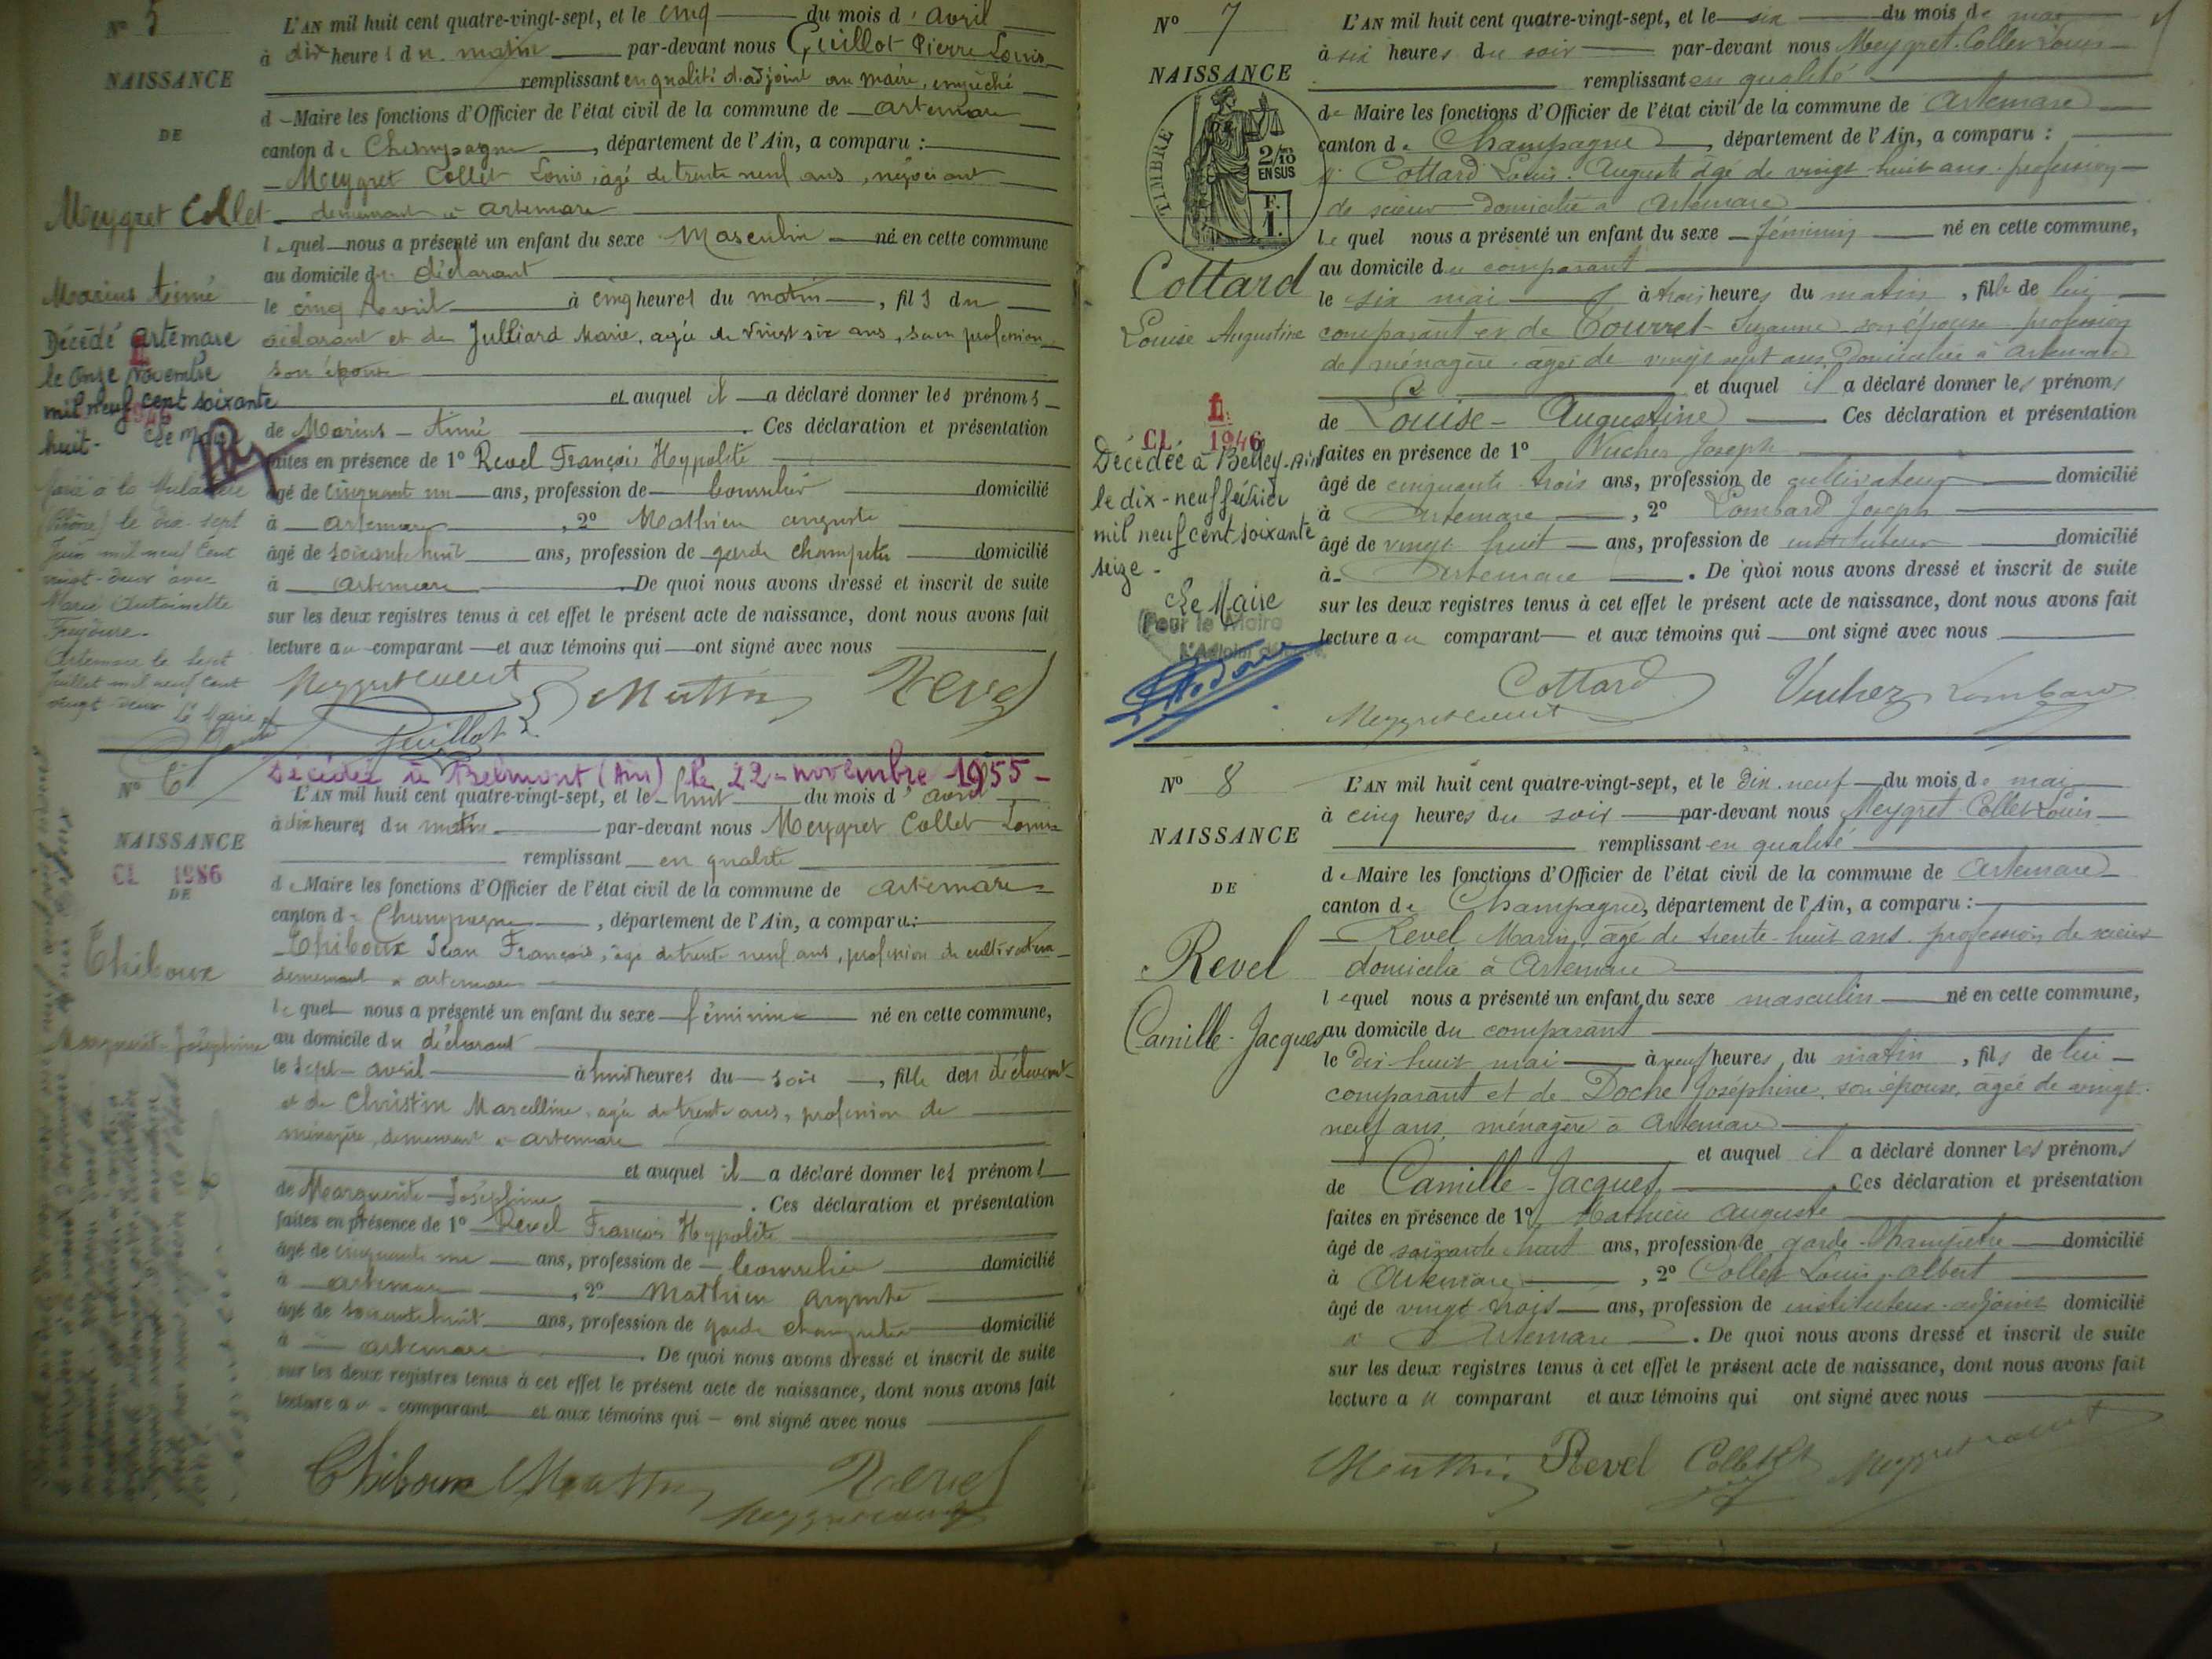 N° 5
NAISSANCE
DE
Meygret Collet
Marius Aimé
Décédé Artemare
le onze Novembre
mil neuf cent soixante
huit.
le dix-sept
Juin mil neuf cent
vingt-deux avec
Marie Antoinette
Artemare le sept
Juillet mil neuf cent
vingt-deux
L'AN mil huit cent quatre-vingt-sept, et le cinq du mois d'avril
à dix heures du matin par-devant nous Guillot Pierre Louis
remplissant en qualité d'adjoint au maire, empêché
d Maire les fonctions d'Officier de l'état civil de la commune de artemare
canton de Champagne, département de l'Ain, a comparu :
Meygret Collet Louis, âgé de trente neuf ans, négociant
demeurant à artemare
lequel nous a présenté un enfant du sexe Masculin né en cette commune
au domicile du déclarant
le cinq avril à cinq heures du matin, fils du
déclarant et de Julliard Marie, agée de vingt six ans, sans profession
son épouse
et auquel il a déclaré donner les prénoms
de Marius - Aimé. Ces déclaration et présentation
faites en présence de 1° Revel François Hypolite
âgé de cinquante un ans, profession de domicilié
à artemare, 2° Mathieu auguste
âgé de soixante huit ans, profession de garde champêtre domicilié
à artemare. De quoi nous avons dressé et inscrit de suite
sur les deux registres tenus à cet effet le présent acte de naissance, dont nous avons fait
lecture au comparant et aux témoins qui ont signé avec nous
Guillot Revel
N° 6
Décédée à Belmont (Ain) le 22 - novembre 1955 -
NAISSANCE
CL 1986
DE
Thiboux
Marguerite-Joséphine
L'AN mil huit cent quatre-vingt-sept, et le huit du mois d'avril
à dix heures du matin par-devant nous Meygret Collet Louis
remplissant en qualité
de Maire les fonctions d'Officier de l'état civil de la commune de artemare
canton de Champagne, département de l'Ain, a comparu :
Thiboux Jean François, âgé de trente neuf ans, profession de cultivateur
demeurant à artemare
lequel nous a présenté un enfant du sexe féminin né en cette commune,
au domicile du déclarant
le sept avril à huit heures du soir, fille du déclarant
et de Christin Marcelline, agée de trente ans, profession de
ménagère, demeurant à artemare
et auquel il a déclaré donner les prénoms
de Marguerite - Joséphine. Ces déclaration et présentation
faites en présence de 1° Revel François Hypolite
âgé de cinquante un ans, profession de domicilié
à artemare, 2° Mathieu auguste
âgé de soixante huit ans, profession de garde champêtre domicilié
à artemare. De quoi nous avons dressé et inscrit de suite
sur les deux registres tenus à cet effet le présent acte de naissance, dont nous avons fait
lecture au comparant et aux témoins qui ont signé avec nous
Thiboux Revel
N° 7
NAISSANCE
TIMBRE
2/10
EN SUS
F.
1.
Cottard
Louise Augustine
CL 1946
Décédée à Belley-Ain
le dix-neuf février
mil neuf cent soixante
seize -
Le Maire
Pour le Maire
L'AN mil huit cent quatre-vingt-sept, et le six du mois de mai
à six heures du soir par-devant nous Meygret-Collet Louis
remplissant en qualité
de Maire les fonctions d'Officier de l'état civil de la commune de Artemare
canton de Champagne, département de l'Ain, a comparu :
Cottard Louis Auguste âgé de vingt-huit ans profession
de scieur domicilié à Artemare
lequel nous a présenté un enfant du sexe féminin né en cette commune,
au domicile du comparant
le six mai à trois heures du matin, fille de lui
comparant et de Tourret Suzanne son épouse profession
de ménagère agée de vingt sept ans, Domiciliée à Artemare
et auquel il a déclaré donner les prénoms
de Louise - Augustine Ces déclaration et présentation
faites en présence de 1° Vucher Joseph
âgé de cinquante trois ans, profession de cultivateur domicilié
à Artemare, 2° Lombard Joseph
âgé de vingt huit ans, profession de instituteur domicilié
à Artemare. De quoi nous avons dressé et inscrit de suite
sur les deux registres tenus à cet effet le présent acte de naissance, dont nous avons fait
lecture au comparant et aux témoins qui ont signé avec nous
Cottard Vucher Lombard
N° 8
NAISSANCE
DE
Revel
Camille-Jacques
L'AN mil huit cent quatre-vingt-sept, et le dix-neuf du mois de mai
à cinq heures du soir par-devant nous Meygret Collet Louis
remplissant en qualité
de Maire les fonctions d'Officier de l'état civil de la commune de Artemare
canton de Champagne, département de l'Ain, a comparu :
Revel Marin, âgé de trente-huit ans, profession de scieur
domicilié à Artemare
lequel nous a présenté un enfant du sexe masculin né en cette commune,
au domicile du comparant
le dix-huit mai à neuf heures du matin, fils de lui
comparant et de Doche Joséphine, son épouse, agée de vingt
neuf ans, ménagère à Artemare
et auquel il a déclaré donner les prénoms
de Camille-Jacques. Ces déclaration et présentation
faites en présence de 1° Mathieu Auguste
âgé de soixante huit ans, profession de garde-champêtre domicilié
à Artemare, 2° Collet Louis Albert
âgé de vingt trois ans, profession de instituteur-adjoint domicilié
à Artemare. De quoi nous avons dressé et inscrit de suite
sur les deux registres tenus à cet effet le présent acte de naissance, dont nous avons fait
lecture au comparant et aux témoins qui ont signé avec nous
Revel